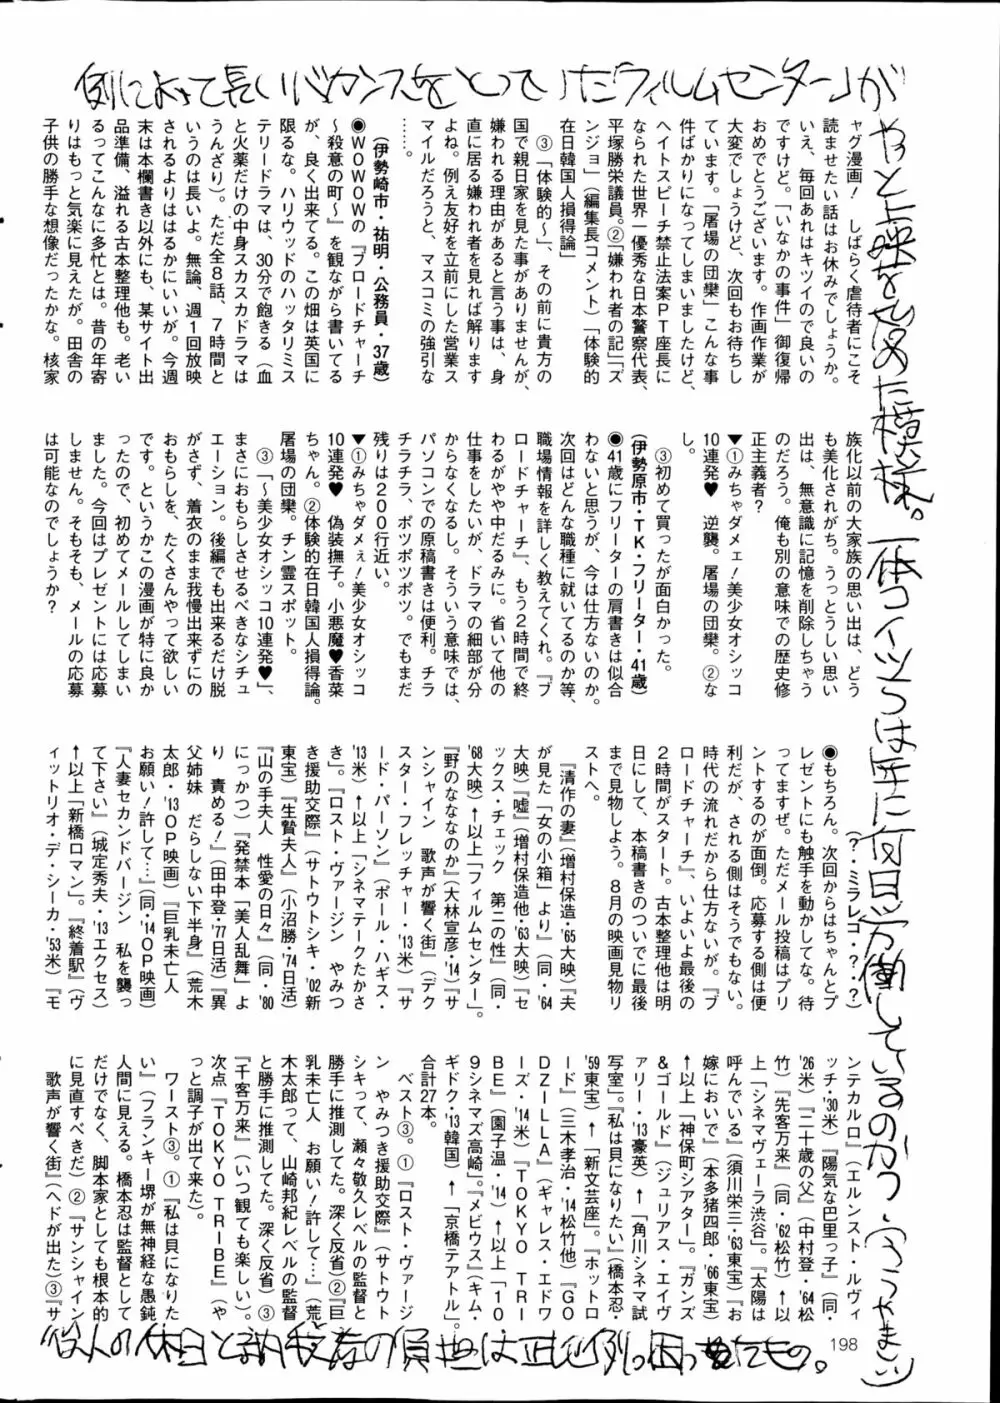 例によって長いバカンスをとっていた「フィルムセンター」が
やっと上映を始めた模様。一体コイツらは年に何日
働いているのか?(うらやましい)
ャグ漫画!　しばらく虐待者にこそ
読ませたい話はお休みでしょうか。
いえ、毎回あれはキツイので良いの
ですけど。「いなかの事件」御復帰
おめでとうございます。作画作業が
大変でしょうけど、次回もお待ちし
ています。「屠場の団欒」こんな事
件ばかりになってしまいましたけど、
ヘイトスピーチ禁止法案PT座長に
なられた世界一優秀な日本警察代表、
平塚勝栄議員。②「嫌われ者の記」「ズ
ンジョ」(編集長コメント)「体験的
在日韓国人損得論」
③「体験的〜」、その前に貴方の
国で親日家を見た事がありませんが、
嫌われる理由があると言う事は、身
直に居る嫌われ者を見れば解ります
よね。例え友好を立前にした営業ス
マイルだろうと、マスコミの強引な
……。
(伊勢崎市・祐明・公務員・37歳)
◉WOWOWの『ブロードチャーチ
〜殺意の町〜』を観ながら書いてる
が、良く出来てる。この畑は英国に
限るな。ハリウッドのハッタリミス
テリードラマは、30分で飽きる(血
と火薬だけの中身スカスカドラマは
うんざり)。ただ全8話、7時間と
いうのは長いよ。無論、週1回放映
されるよりははるかにいいが。今週
末は本欄書き以外にも、某サイト出
品準備、溢れる古本整理他も。老い
るってこんなに多忙とは。昔の年寄
りはもっと気楽に見えたが。田舎の
子供の勝手な想像だったかな。核家
族化以前の大家族の思い出は、どう
も美化されがち。うっとうしい思い
出は、無意識に記憶を削除しちゃう
のだろう。俺も別の意味での歴史修
正主義者?
▼①みちゃダメェ!美少女オシッコ
10連発♥　逆襲。屠場の団欒。②な
し。
③初めて買ったが面白かった。
(伊勢原市・TK・フリーター・41歳)
◉41歳にフリーターの肩書きは似合
わないと思うが、今は仕方ないのか。
次回はどんな職種に就いてるのか等、
職場情報を詳しく教えてくれ。『ブ
ロードチャーチ』、もう2時間で終
わるがやや中だるみに。省いて他の
仕事をしたいが、ドラマの細部が分
からなくなるし。そういう意味では、
パソコンでの原稿書きは便利。チラ
チラチラ、ポツポツポツ。でもまだ
残りは200行近い。
▼①みちゃダメぇ!美少女オシッコ
10連発♥　偽装撫子。小悪魔♥香菜
ちゃん。②体験的在日韓国人損得論。
屠場の団欒。チン霊スポット。
③「〜美少女オシッコ10連発♥」、
まさにおもらしさせるべきなシチュ
エーション。後編でも出来るだけ脱
がさず、着衣のまま我慢出来ずにの
おもらしを、たくさんやって欲しい
です。というかこの漫画が特に良か
ったので、初めてメールしてしまい
ました。今回はプレゼントには応募
しません。そもそも、メールの応募
は可能なのでしょうか?
(?・ミラレコ・?・?)
◉もちろん。次回からはちゃんとプ
レゼントにも触手を動かしてな。待
ってますぜ。ただメール投稿はプリ
ントするのが面倒。応募する側は便
利だが、される側はそうでもない。
時代の流れだから仕方ないが。『ブ
ロードチャーチ』、いよいよ最後の
2時間がスタート。古本整理他は明
日にして、本稿書きのついでに最後
まで見物しよう。8月の映画見物リ
ストへ。
『清作の妻』(増村保造・'65大映)『夫
が見た「女の小箱」より』(同・'64
大映)『嘘』(増村保造他・'63大映)『セ
ックス・チェック　第二の性』(同・
'68大映)↑以上「フィルムセンター」。
『野のなななのか』(大林宣彦・'14)『サ
ンシャイン　歌声が響く街』(デク
スター・フレッチャー・'13米)『サ
ード・パーソン』(ポール・ハギス・
'13米)↑以上「シネマテークたかさ
き」。『ロスト・ヴァージン　やみつ
き援助交際』(サトウトシキ・'02新
東宝)『生贄夫人』(小沼勝・'74日活)
『山の手夫人　性愛の日々』(同・'80
にっかつ)『発禁本「美人乱舞」よ
り　責める!』(田中登・'77日活)『異
父姉妹　だらしない下半身』(荒木
太郎・'13OP映画)『巨乳未亡人
お願い!許して…』(同・'14OP映画)
『人妻セカンドバージン　私を襲っ
て下さい』(城定秀夫・'13エクセス)
↑以上「新橋ロマン」。『終着駅』(ヴ
ィットリオ・デ・シーカ・'53米)『モ
ンテカルロ』(エルンスト・ルヴィ
ッチ・'30米)『陽気な巴里っ子』(同・
'26米)『二十歳の父』(中村登・'64松
竹)『先客万来』(同・'62松竹)↑以
上「シネマヴェーラ渋谷」。『太陽は
呼んでいる』(須川栄三・'63東宝)『お
嫁においで』(本多猪四郎・'66東宝)
↑以上「神保町シアター」。『ガンズ
&ゴールド』(ジュリアス・エイヴ
ァリー・'13豪英)↑「角川シネマ試
写室」。『私は貝になりたい』(橋本忍・
'59東宝)↑「新文芸座」。『ホットロ
ード』(三木孝治・'14松竹他)『GO
DZILLA』(ギャレス・エドワ
ーズ・'14米)『TOKYO TRI
BE』(園子温・'14)↑以上「10
9シネマズ高崎」。『メビウス』(キム・
ギドク・'13韓国)↑「京橋テアトル」。
合計27本。
ベスト③。①『ロスト・ヴァージ
ン　やみつき援助交際』(サトウト
シキって、瀬々敬久レベルの監督と
勝手に推測してた。深く反省)②『巨
乳未亡人　お願い!許して…』(荒
木太郎って、山崎邦紀レベルの監督
と勝手に推測してた。深く反省)③
『千客万来』(いつ観ても楽しい)。
次点『TOKYO TRIBE』(や
っと調子が出て来た)。
ワースト③。①『私は貝になりた
い』(フランキー堺が無神経な愚鈍
人間に見える。橋本忍は監督として
だけでなく、脚本家としても根本的
に見直すべきだ)②『サンシャイン
歌声が響く街』(ヘドが出た)③『サ
役人の休日と納税者の負担は正比例。困ったもの。
198